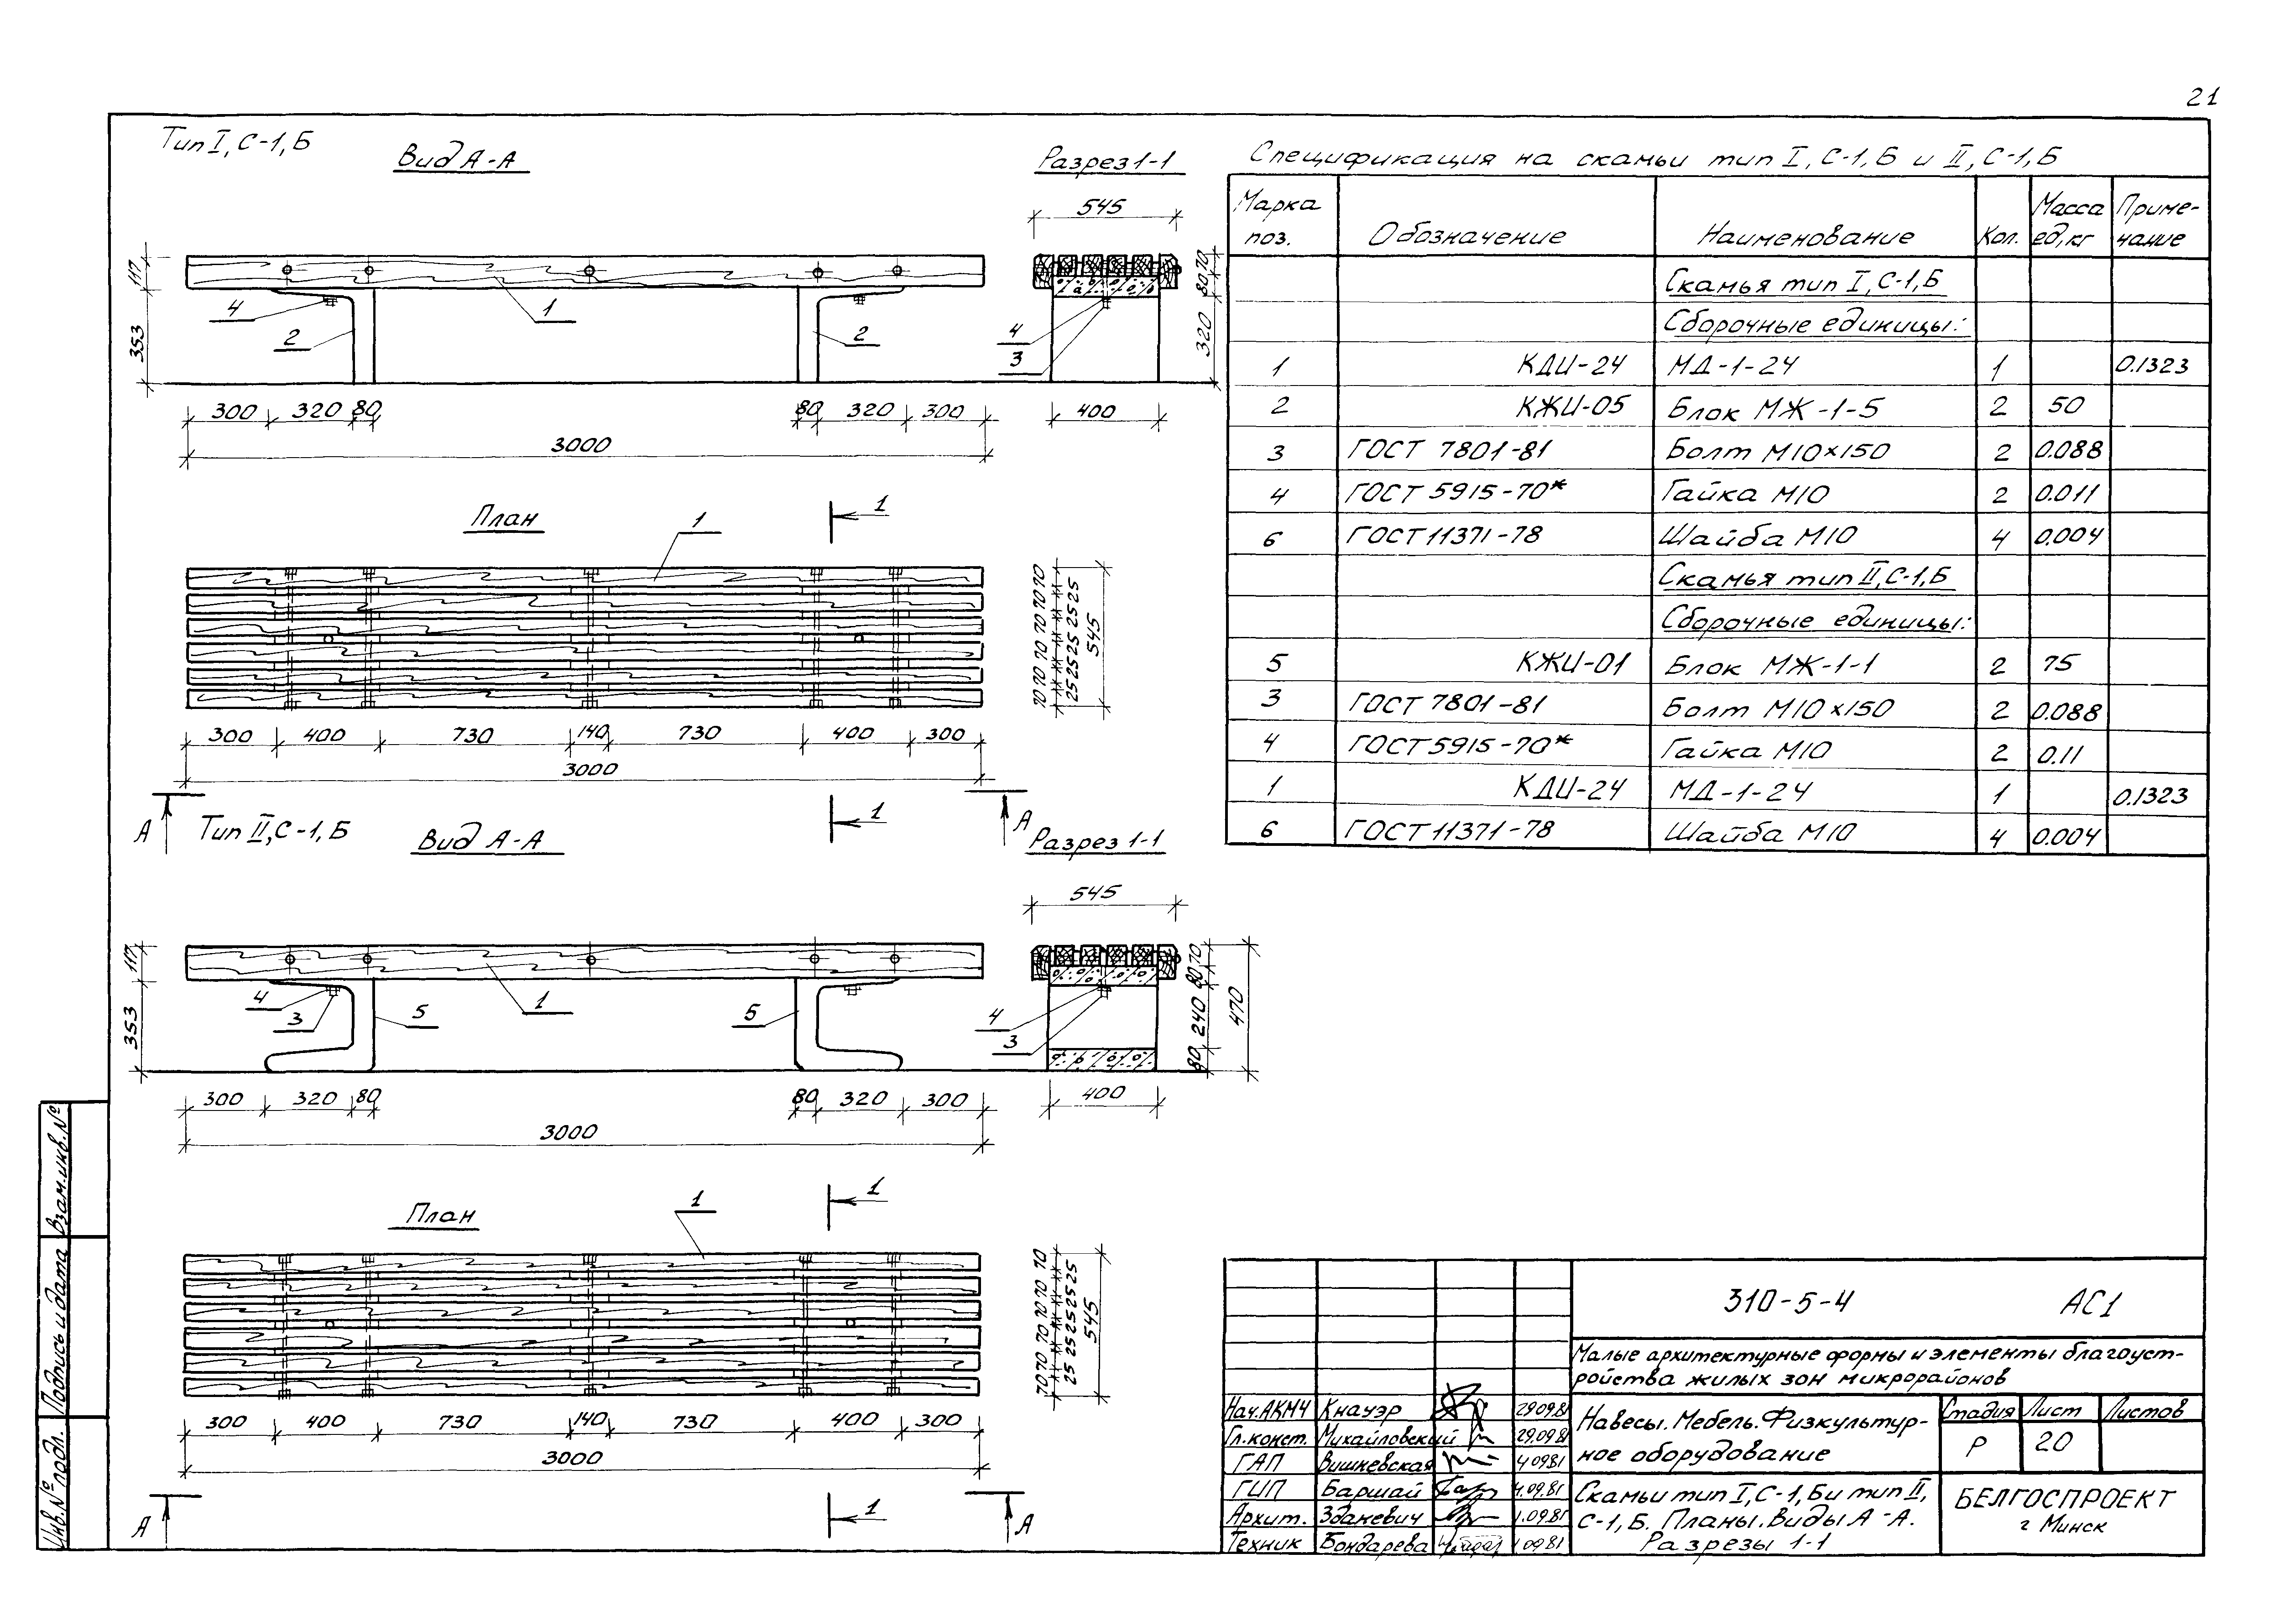 21
Тип I, С-1, Б
Вид А-А
Разрез 1-1
545
117
353
4
2
1
2
4
3
70
80
320
300 320 80 80 320 300
3000
400
План
1
1
70 70 70 70 70 70
25 25 25 25 25
545
300 400 730 140 730 400 300
3000
А
1
А
Тип II, С-1, Б
Вид А-А
Разрез 1-1
545
117
353
4
3
5
1
5
4
3
70
80
240
80
470
300 320 80 80 320 300
3000
400
План
1
1
70 70 70 70 70 70
25 25 25 25 25
545
300 400 730 140 730 400 300
3000
А
1
А
Спецификация на скамьи тип I, С-1, Б и II, С-1, Б
Марка поз. Обозначение Наименование Кол. Масса ед, кг Приме-чание
Скамья тип I, С-1, Б
Сборочные единицы:
1 КДИ-24 МД-1-24 1 0.1323
2 КЖИ-05 Блок МЖ-1-5 2 50
3 ГОСТ 7801-81 Болт М10×150 2 0.088
4 ГОСТ 5915-70* Гайка М10 2 0.011
6 ГОСТ 11371-78 Шайба М10 4 0.004
Скамья тип II, С-1, Б
Сборочные единицы:
5 КЖИ-01 Блок МЖ-1-1 2 75
3 ГОСТ 7801-81 Болт М10×150 2 0.088
4 ГОСТ 5915-70* Гайка М10 2 0.11
1 КДИ-24 МД-1-24 1 0.1323
6 ГОСТ 11371-78 Шайба М10 4 0.004
310-5-4 АС1
Малые архитектурные формы и элементы благоуст-
ройства жилых зон микрорайонов
Нач.АКМ4 Кнауэр 29.09.81
Гл.конст. Михайловский 29.09.81
ГАП Вишневская 4.09.81
ГИП Баршай 4.09.81
Архит. Зданевич 1.09.81
Техник Бондарева 1.09.81
Навесы. Мебель. Физкультур-
ное оборудование
Стадия Лист Листов
Р 20
Скамьи тип I, С-1, Б и тип II,
С-1, Б. Планы. Виды А-А.
Разрезы 1-1
БЕЛГОСПРОЕКТ
г Минск
Взам.инв.№
Подпись и дата
Инв.№ подл.